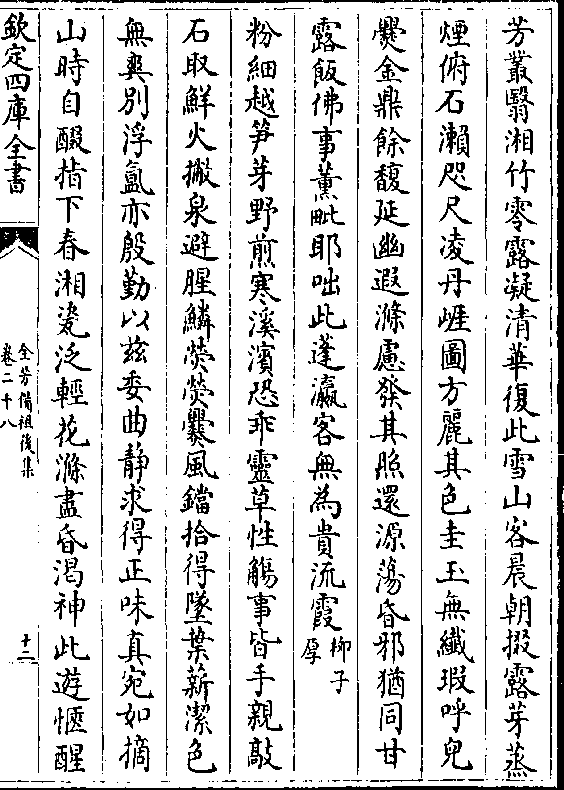 芳叢翳湘竹零露凝清華復此雪山客晨朝掇露芽蒸
煙俯石瀨咫尺凌丹崕圖方麗其色圭玉無纖瑕呼兒
爨金鼎餘馥延幽遐滌慮發其照還源蕩昏邪猶同甘
露飯佛事薰毗耶咄此蓬瀛客無為貴流霞柳子厚
粉細越笋芽野煎寒溪濱恐乖靈草性觸事皆手親敲
石取鮮火撇泉避腥鱗熒熒爨風鐺拾得墜葉薪潔色
無爽別浮氳亦殷勤以兹委曲靜求得正味真宛如摘
山時自醊指下春湘瓷泛輕花滌盡昏渴神此遊愜醒
欽定四庫全書
全芳備祖後集
卷二十八
十二